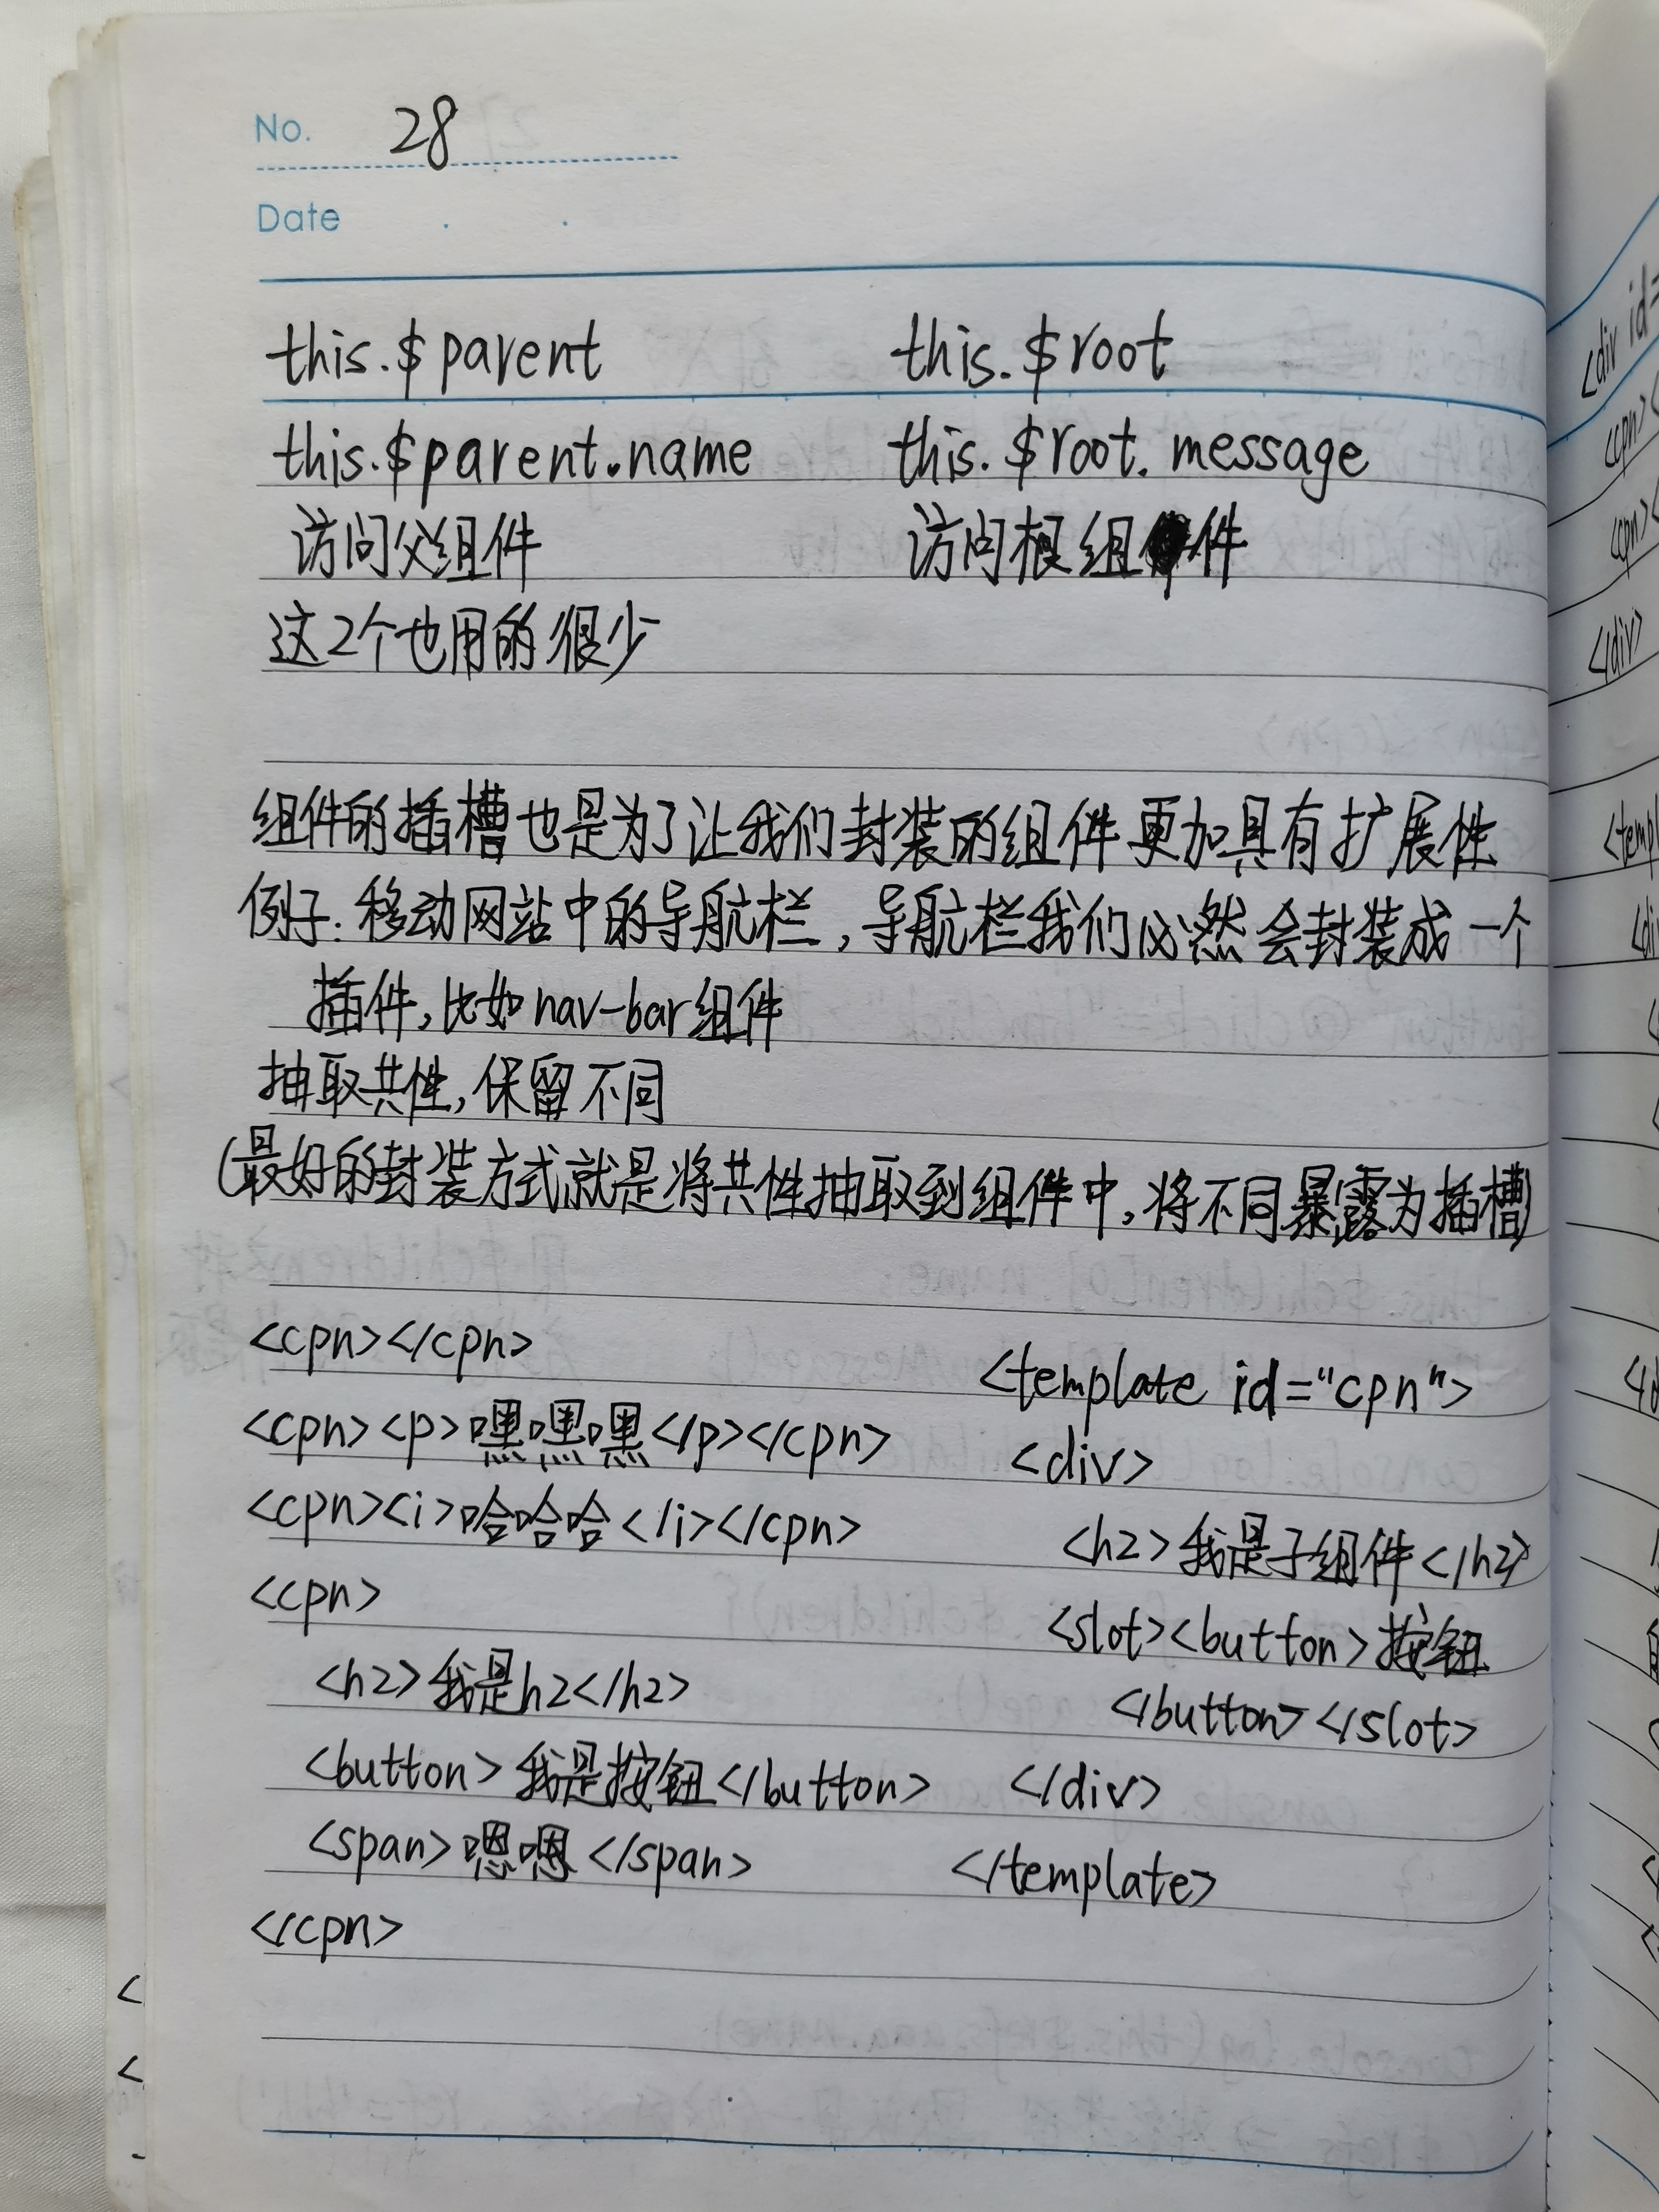 No. 28
Date
this.$parent this.$root
this.$parent.name this.$root.message
访问父组件 访问根组件
这2个也用的很少
组件的插槽也是为了让我们封装的组件更加具有扩展性
例子:移动网站中的导航栏,导航栏我们必然会封装成一个
插件,比如nav-bar组件
抽取共性,保留不同
(最好的封装方式就是将共性抽取到组件中,将不同暴露为插槽)
<cpn></cpn>
<cpn><p>嘿嘿嘿</p></cpn>
<cpn><i>哈哈哈</i></cpn>
<cpn>
<h2>我是h2</h2>
<button>我是按钮</button>
<span>嗯嗯</span>
</cpn>
<template id="cpn">
<div>
<h2>我是子组件</h2>
<slot><button>按钮
</button></slot>
</div>
</template>
<div id=
<cpn><
<cpn><
</div>
<temp
<di
</d